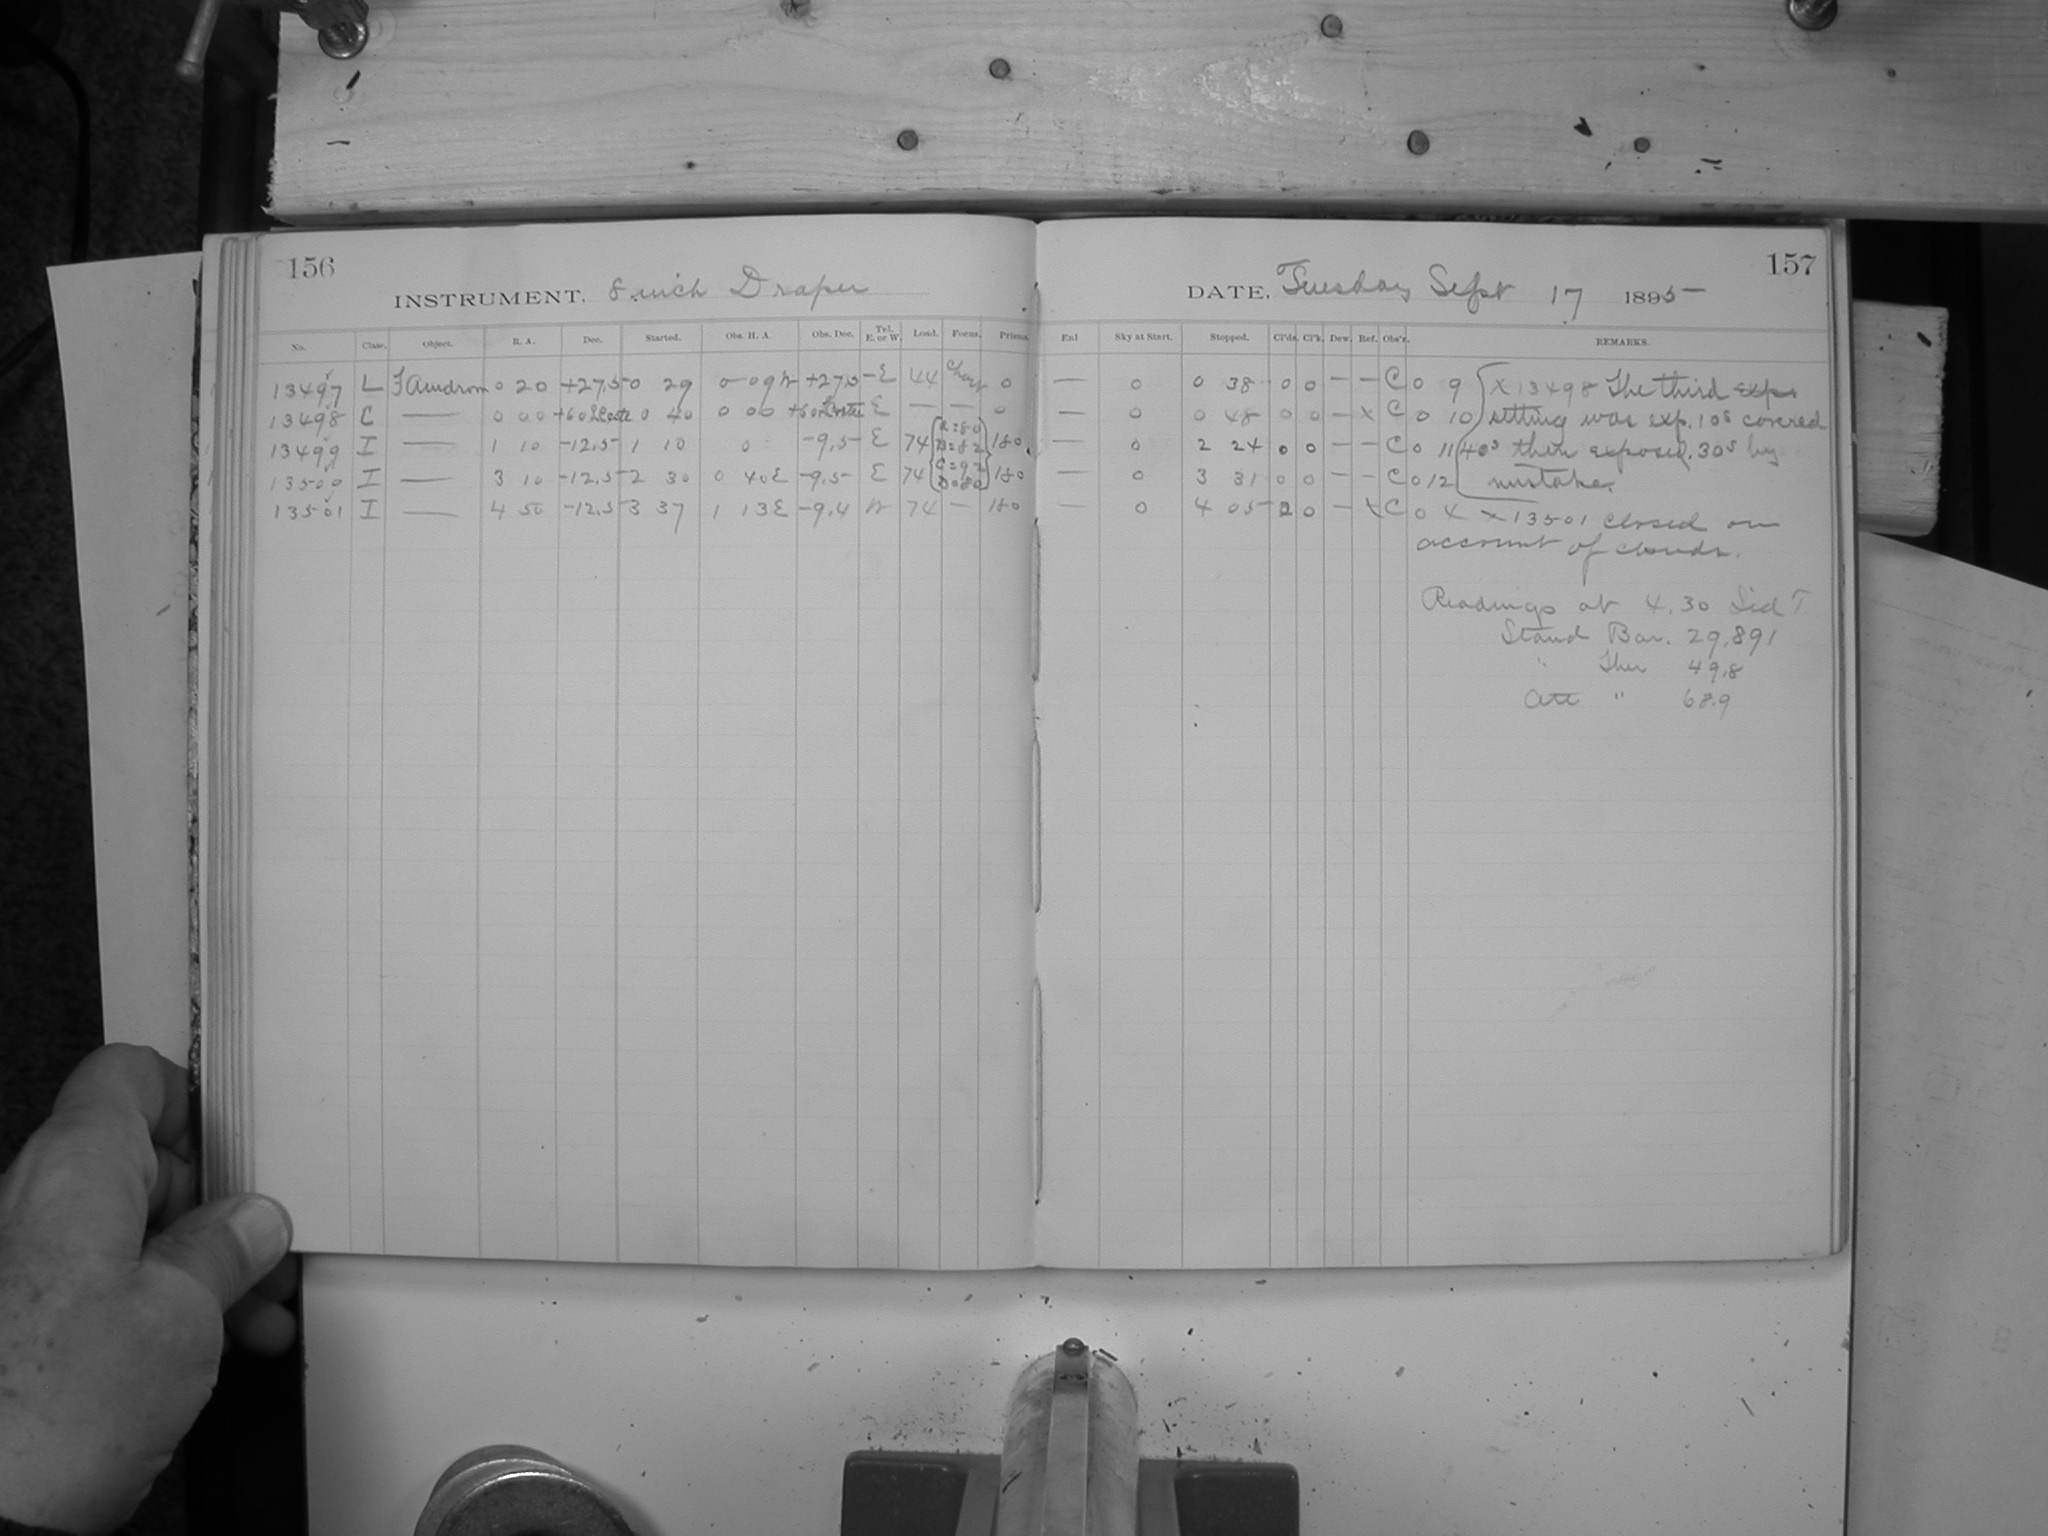 156
INSTRUMENT. 8 inch Draper
No. Class. Object. R. A. Dec. Started. Obs. H. A. Obs. Dec. Tel. E. or W. Load. Focus. Prisms.
13497 L T Androm 0 20 +27.5 0 29 0 09 W +27.5 E 44 Chart 0
13498 C — 0 00 +60 0 40 0 00 +60 E — — 0
13499 I — 1 10 -12.5 1 10 0 -9.5 E 74 A=80 B=82 180
13500 I — 3 10 -12.5 2 30 0 40E -9.5 E 74 C=92 D=80 180
13501 I — 4 50 -12.5 3 37 1 13E -9.4 W 74 — 180
157
DATE. Tuesday Sept 17 1895
Enl Sky at Start. Stopped. Cl'ds. Cl'k. Dew. Ref. Obs'r. REMARKS.
— 0 0 38 0 0 — — C 0 9 X 13498 The third exp.
— 0 0 48 0 0 — X C 0 10 sitting was exp. 10s covered
— 0 2 24 0 0 — — C 0 11 40s then exposed 30s by
— 0 3 31 0 0 — — C 0 12 mistake.
— 0 4 05 2 0 — X C 0 4 X 13501 Closed on
account of clouds.
Readings at 4.30 Sid T
Stand Bar. 29.891
" Ther 49.8
Att " 68.9